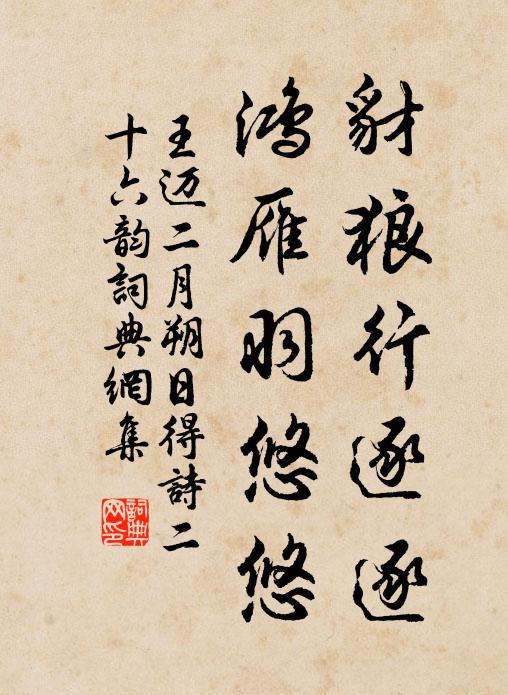 豺狼行逐逐
鸿雁羽悠悠
王迈二月朔日得詩二
十六韵詞典網集
詞典网印